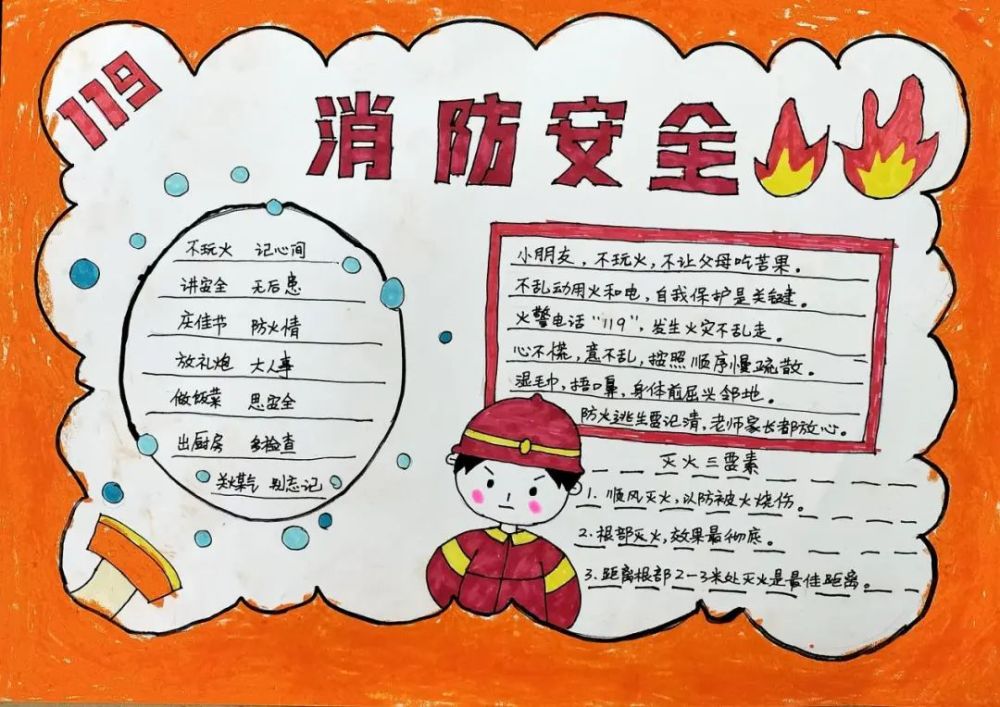 119
消防安全
不玩火 记心间
讲安全 无后患
庆佳节 防火情
放礼炮 大人事
做饭菜 思安全
出厨房 多检查
关煤气 别忘记
小朋友，不玩火，不让父母吃苦果。
不乱动用火和电，自我保护是关键。
火警电话“119”，发生火灾不乱走。
心不慌，意不乱，按照顺序慢疏散。
湿毛巾，捂口鼻，身体前屈兴邻地。
防火逃生要记清，老师家长都放心。
灭火三要素
1. 顺风灭火，以防被火烧伤。
2. 根部灭火，效果最彻底。
3. 距离根部2-3米处灭火是最佳距离。